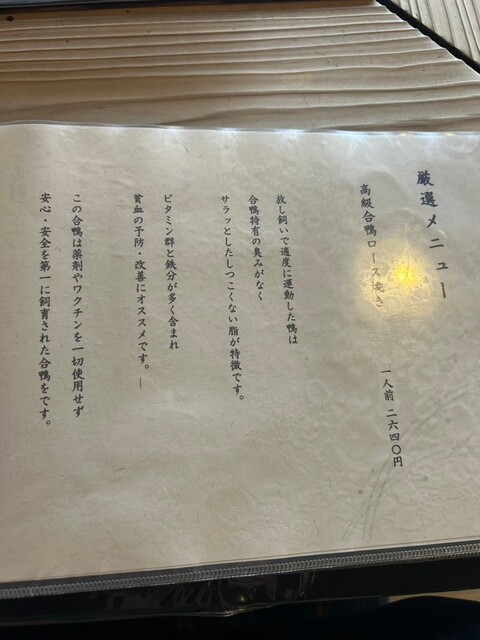 厳選メニュー
高級合鴨ロース焼き
一人前 二六四〇円
放し飼いで適度に運動した鴨は
合鴨特有の臭みがなく
サラッとしたしつこくない脂が特徴です。
ビタミン群と鉄分が多く含まれ
貧血の予防・改善にオススメです。
この合鴨は薬剤やワクチンを一切使用せず
安心・安全を第一に飼育された合鴨をです。